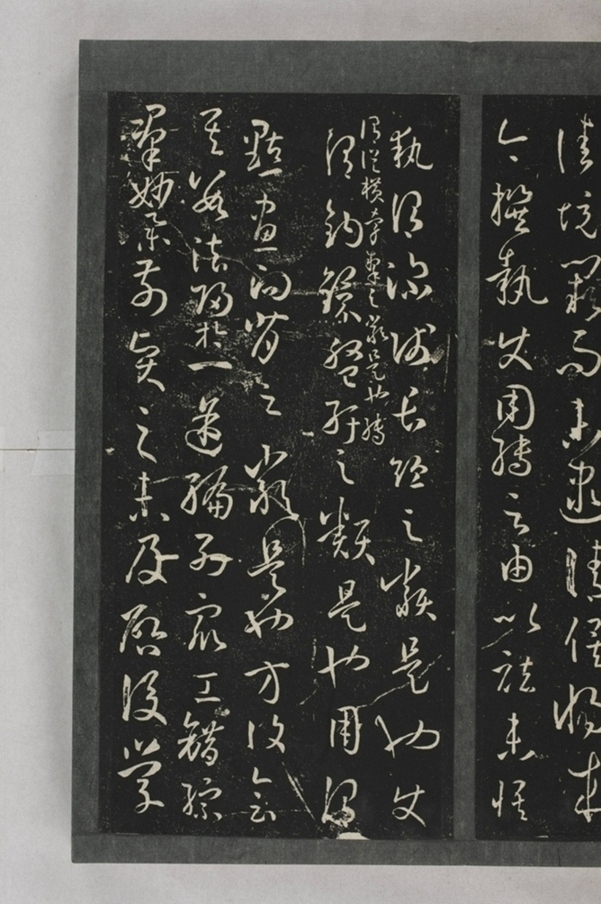 佳境闕而未逮請俟將來
今撰執使用轉之由以祛未悟
執謂深淺長短之類是也使
謂縱橫牽掣之類是也轉
謂鉤鐶盤紆之類是也用謂
點畫向背之類是也方復會
其數法歸於一途編列衆工錯綜
羣妙舉前賢之未及啓後學